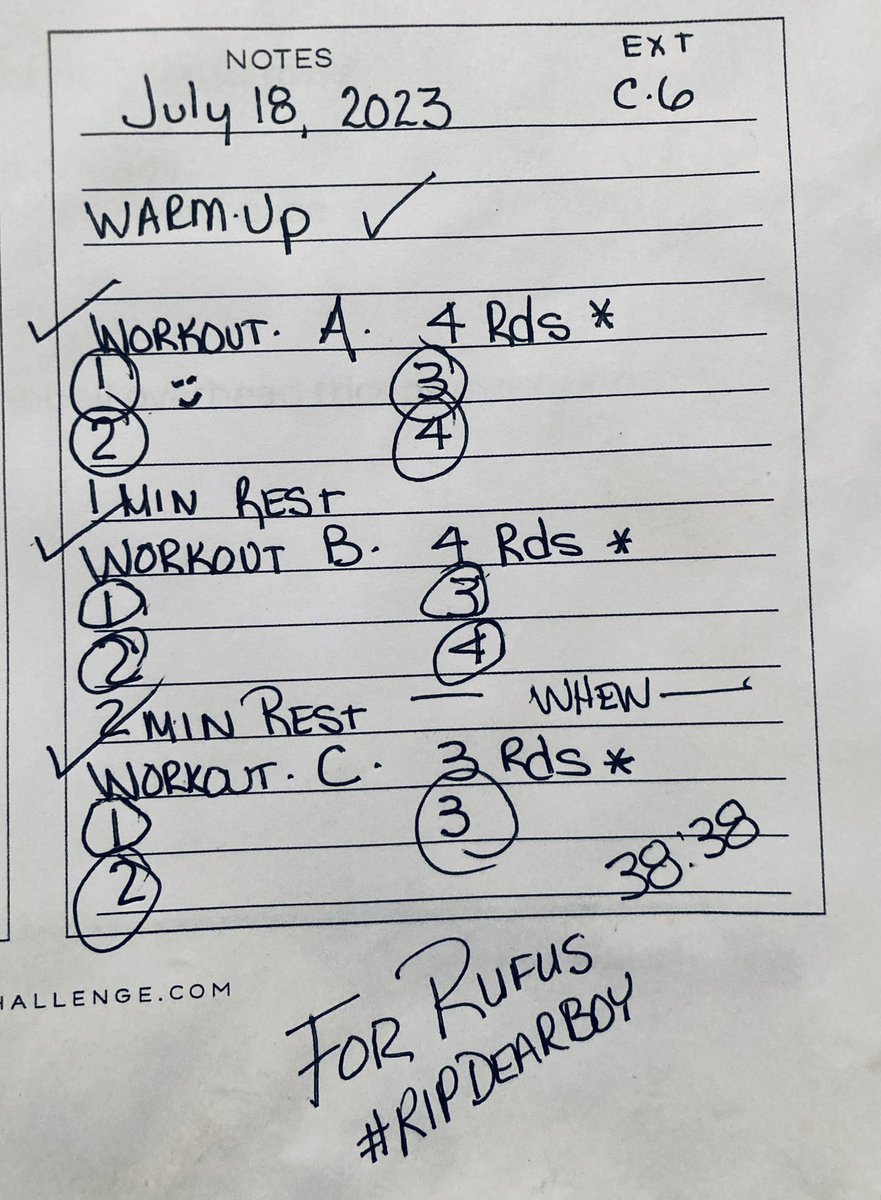 NOTES
EXT
July 18, 2023
C.6
WARM-UP ✓
✓
WORKOUT. A. 4 Rds *
1 3
2 4
1 MIN REST
✓
WORKOUT B. 4 Rds *
1 3
2 4
2 MIN REST — WHEW —
✓
WORKOUT. C. 3 Rds *
1 3
2 38:38
HALLENGE.COM
FOR RUFUS
#RIPDEARBOY